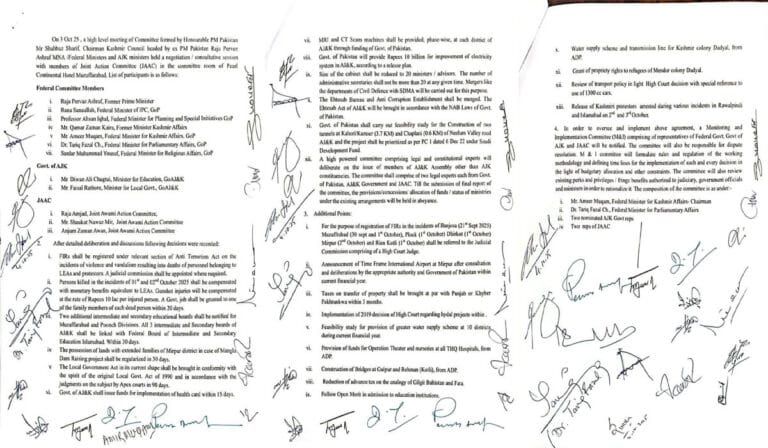 On 3 Oct 25, a high level meeting of Committee formed by Honourable PM Pakistan
Mr Shahbaz Sharif, Chairman Kashmir Council headed by ex PM Pakistan Raja Pervaz
Ashraf MNA (Federal Ministers and AJK ministers held a negotiation / consultative session
with members of Joint Action Committee (JAAC) in the committee room of Pearl
Continental Hotel Muzaffarabad. List of participants is as follows:
Federal Committee Members
i. Raja Pervaz Ashraf, Former Prime Minister
ii. Rana Sanaullah, Federal Minister of IPC, GoP
iii. Professor Ahsan Iqbal, Federal Minister for Planning and Special Initiatives GoP
iv Mr Qamar Zaman Kaira, Former Minister Kashmir Affairs
v. Mr Ameer Muqam, Federal Minister for Kashmir Affairs, GoP
vi. Dr Tariq Fazal Ch, Federal Minister for Parliamentary Affairs, GoP
vii. Sardar Muhammad Yousaf, Federal Minister for Religious Affairs, GoP
Govt. of AJK
i. Mr Diwan Ali Chagtai, Minister for Education, GoAJ&K
ii. Mr Faisal Rathore, Minister for Local Govt., GoAJ&K
JAAC
i. Raja Amjad, Joint Awami Action Committee,
ii. Mr. Shaukat Nawaz Mir, Joint Awami Action Committee
iii. Anjum Zaman Awan, Joint Awami Action Committee
2. After detailed deliberation and discussions following decisions were recorded:
i. FIRs shall be registered under relevant section of Anti Terrorism Act on the
incidents of violence and vandalism resulting into deaths of personnel belonging to
LEAs and protestors. A judicial commission shall be appointed where required.
ii. Persons killed in the incidents of 01st and 02nd October 2025 shall be compensated
with monetary benefits equivalent to LEAs. Gunshot injuries will be compensated
at the rate of Rupees 10 lac per injured person. A Govt. job shall be granted to one of
the family members of each dead person within 20 days.
iii. Two additional intermediate and secondary educational boards shall be notified for
Muzaffarabad and Poonch Divisions. All 3 intermediate and Secondary boards of
AJ&K shall be linked with Federal Board of Intermediate and Secondary
Education Islamabad. Within 30 days.
iv. The possession of lands with extended families of Mirpur district in case of Mangla
Dam Raising project shall be regularized in 30 days.
v. The Local Government Act in its current shape shall be brought in conformity with
the spirit of the original Local Govt. Act of 1990 and in accordance with the
judgments on the subject by Apex courts in 90 days.
vi. Govt. of AJ&K shall issue funds for implementation of health card within 15 days.
vii. MRI and CT Scans machines shall be provided, phase-wise, at each district of
AJ&K through funding of Govt. of Pakistan.
viii. Govt. of Pakistan will provide Rupees 10 billion for improvement of electricity
system in AJ&K, according to a release plan.
ix. Size of the cabinet shall be reduced to 20 ministers / advisors. The number of
administrative secretaries shall not be more than 20 at any given time. Mergers like
the departments of Civil Defence with SDMA will be carried out for this purpose.
x. The Ehtesab Bureau and Anti Corruption Establishment shall be merged. The
Ehtesab Act of AJ&K will be brought in accordance with the NAB Laws of Govt.
of Pakistan.
xi. Govt. of Pakistan shall carry out feasibility study for the Construction of two
tunnels at Kahori/Kamser (3.7 KM) and Chaplani (0.6 KM) of Neelum Valley road
AJ&K and the project shall be prioritized as per PC 1 dated 6 Dec 22 under Saudi
Development Fund.
A high powered committee comprising legal and constitutional experts will
deliberate on the issue of members of AJ&K Assembly other than AJK
constituencies. The committee shall comprise of two legal experts each from Govt.
of Pakistan, AJ&K Government and JAAC. Till the submission of final report of
the committee, the provisions/concessions/ allocation of funds / status of ministries
under the existing arrangements will be held in abeyance.
3. Additional Points:
i. For the purpose of registration of FIRs in the incidents of Banjosa (21st Sept 2025)
Muzaffarabad (30 sept and 1st October), Plock (1st October) Dhirkot (1st October)
Mirpur (2nd October) and Rian Kotli (1st October) shall be referred to the Judicial
Commission comprising of a High Court Judge.
ii. Announcement of Time Frame International Airport at Mirpur after consultation
and deliberations by the appropriate authority and Government of Pakistan within
current financial year.
iii. Taxes on transfer of property shall be brought at par with Punjab or Khyber
Pakhtunkwa within 3 months.
iv. Implementation of 2019 decision of High Court regarding hydel projects within.
v. Feasibility study for provision of greater water supply scheme at 10 districts
during current financial year.
vi. Provision of funds for Operation Theater and nurseries at all THQ Hospitals, from
ADP.
vii. Construction of Bridges at Gulpur and Rehman (Kotli), from ADP.
viii. Reduction of advance tax on the analogy of Gilgit Baltistan and Fata.
ix. Follow Open Merit in admission to education institutions.
x. Water supply scheme and transmission line for Kashmir colony Dadyal, from
ADP.
xi. Grant of proprietary rights to refugees of Mendor colony Dadyal.
xii. Review of transport policy in light High Court decision with special reference to
use of 1300 cc cars.
xiii. Release of Kashmiri protestors arrested during various incidents in Rawalpindi
and Islamabad on 2nd and 3rd October.
4. In order to oversee and implement above agreement, a Monitoring and
Implementation Committee (M&I) comprising of representatives of Federal Govt, Govt of
AJK and JAAC will be notified. The committee will also be responsible for dispute
resolution. M & I committee will formulate rules and regulation of the working
methodology and defining time lines for the implementation of each and every decision in
the light of budgetary allocation and other constraints. The committee will also review
existing perks and privileges / fringe benefits authorized to judiciary, government officials
and ministers in order to rationalize it. The composition of the committee is as under:-
i. Mr Ameer Muqam, Federal Minister for Kashmir Affairs- Chairman
ii. Dr Tariq Fazal Ch., Federal Minister for Parliamentary Affairs
iii. Two nominated AJK Govt reps
iv. Two reps of JAAC